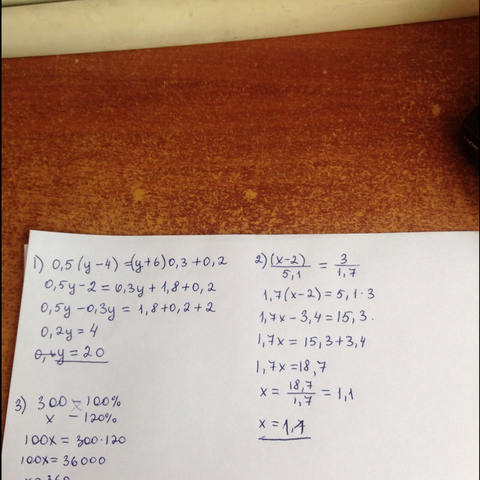 1) 0,5(y-4)=(y+6)0,3+0,2
0,5y-2=0,3y+1,8+0,2
0,5y-0,3y=1,8+0,2+2
0,2y=4
y=20
2) (x-2)/5,1 = 3/1,7
1,7(x-2)=5,1·3
1,7x-3,4=15,3.
1,7x=15,3+3,4
1,7x=18,7
x=18,7/1,7=1,1
x=1,1
3) 300 - 100%
x - 120%
100x=300·120
100x=36000
x=360